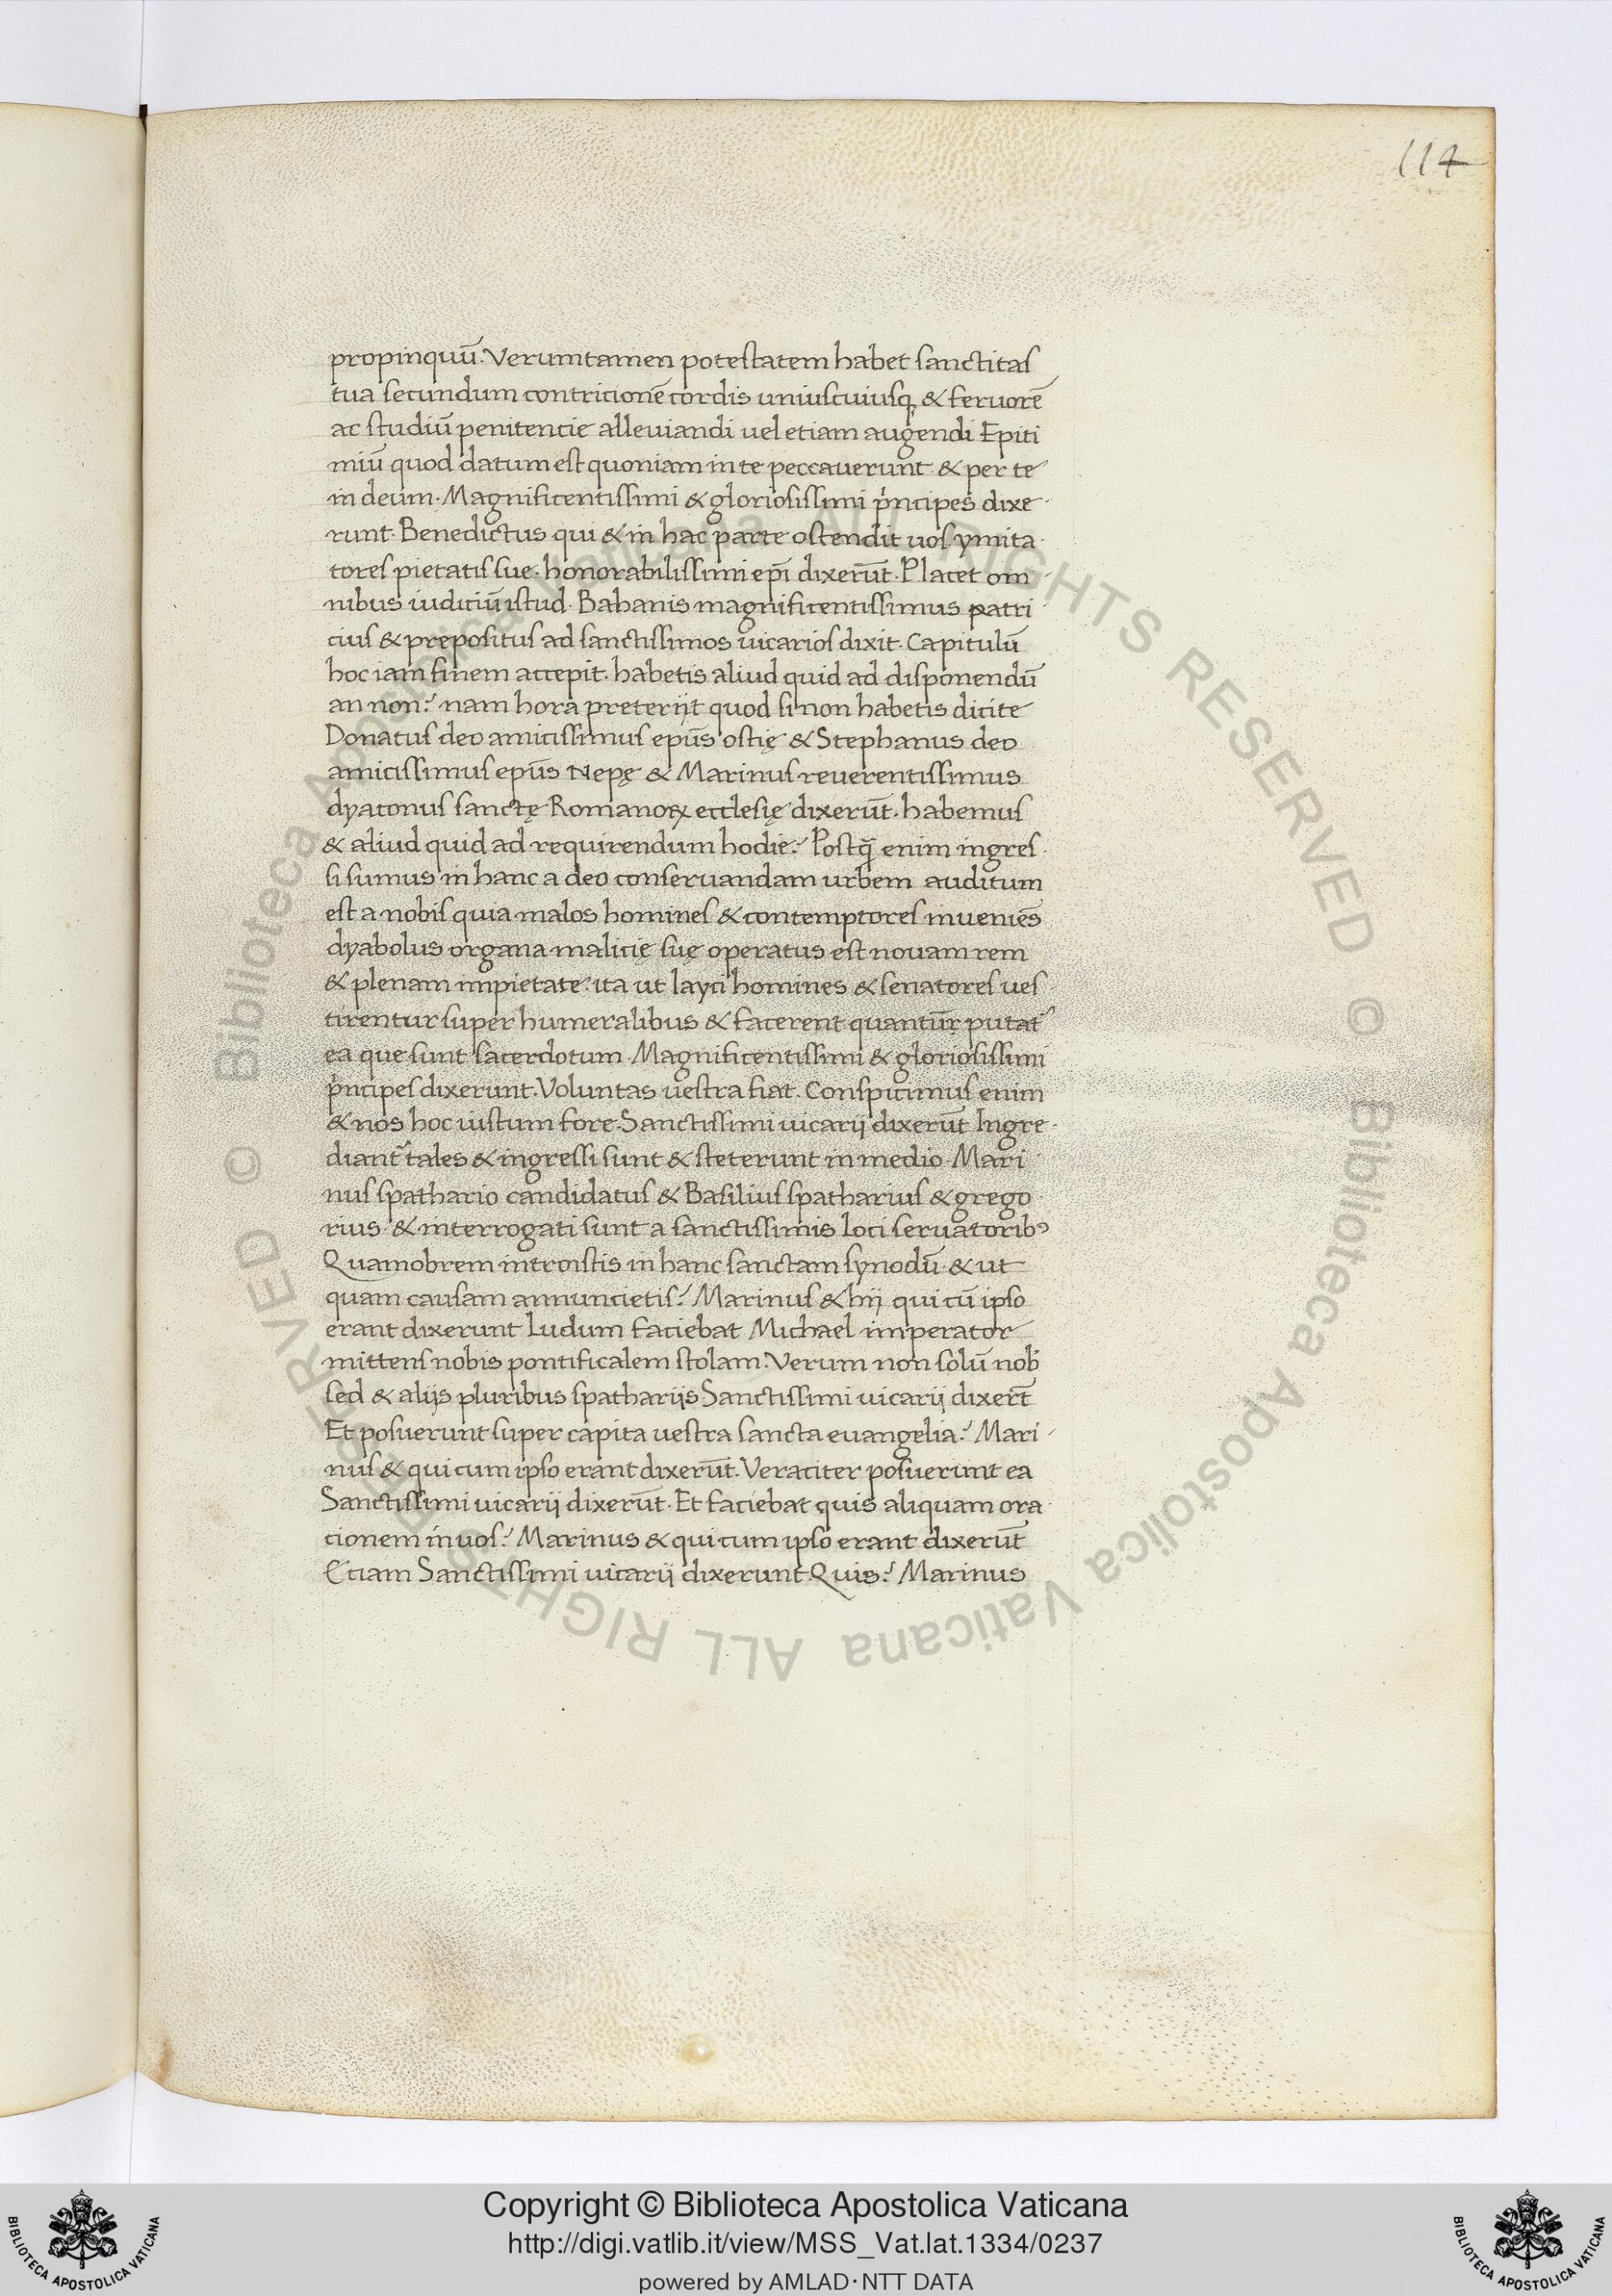 114
propinquū. Verumtamen potestatem habet sanctitas
tua secundum contricionē cordis uniuscuiusq; & feruorē
ac studiū penitencie alleuiandi uel etiam augendi Epiti
miū quod datum est quoniam in te peccauerunt & per te
in deum. Magnificentissimi & gloriosissimi pͥncipes dixe
runt. Benedictus qui & in hac parte ostendit uos ymita
tores pietatis sue. honorabilissimi ep̄i dixerūt. Placet om
nibus iudiciū istud. Bahanis magnificentissimus patri
cius & prepositus ad sanctissimos uicarios dixit. Capitulū
hoc iam finem accepit. habetis aliud quid ad disponendū
an non? nam hora preterijt quod si non habetis dicite
Donatus deo amicissimus ep̄us ostię & Stephanus deo
amicissimus ep̄us Nepę & Marinus reuerentissimus
dyaconus sanctę Romanoꝝ ecclesię dixerūt. habemus
& aliud quid ad requirendum hodie? Postq̄ enim ingres
si sumus in hanc a deo conseruandam urbem auditum
est a nobis quia malos homines & contemptores inueniēs
dyabolus organa malicię suę operatus est nouam rem
& plenam impietate: ita ut layci homines & senatores ues
tirentur super humeralibus & facerent quantūr putat᷑
ea que sunt sacerdotum. Magnificentissimi & gloriosissimi
pͥncipes dixerunt. Voluntas uestra fiat. Conspicimus enim
& nos hoc iustum fore. Sanctissimi uicarij dixerūt Ingre
diant᷑ tales & ingressi sunt & steterunt in medio. Mari
nus spathario candidatus & Basilius spatharius & grego
rius. & interrogati sunt a sanctissimis loci seruatoribꝰ
Quamobrem introistis in hanc sanctam synodū & ut
quam causam annuncietis? Marinus & hij qui cū ipso
erant dixerunt Ludum faciebat Michael imperator
mittens nobis pontificalem stolam. Verum non solū nob̄
sed & alijs pluribus spatharijs Sanctissimi uicarij dixer̄t
Et posuerunt super capita uestra sancta euangelia? Mari
nus & qui cum ipso erant dixerūt. Veraciter posuerunt ea
Sanctissimi uicarij dixerūt. Et faciebat quis aliquam ora
cionem in uos? Marinus & qui cum ipso erant dixerūt
Etiam Sanctissimi uicarij dixerunt Quis? Marinus
© Biblioteca Apostolica Vaticana ALL RIGHTS RESERVED © Biblioteca Apostolica Vaticana ALL RIGHTS RESERVED
Copyright © Biblioteca Apostolica Vaticana
http://digi.vatlib.it/view/MSS_Vat.lat.1334/0237
powered by AMLAD·NTT DATA
BIBLIOTECA APOSTOLICA VATICANA
BIBLIOTECA APOSTOLICA VATICANA